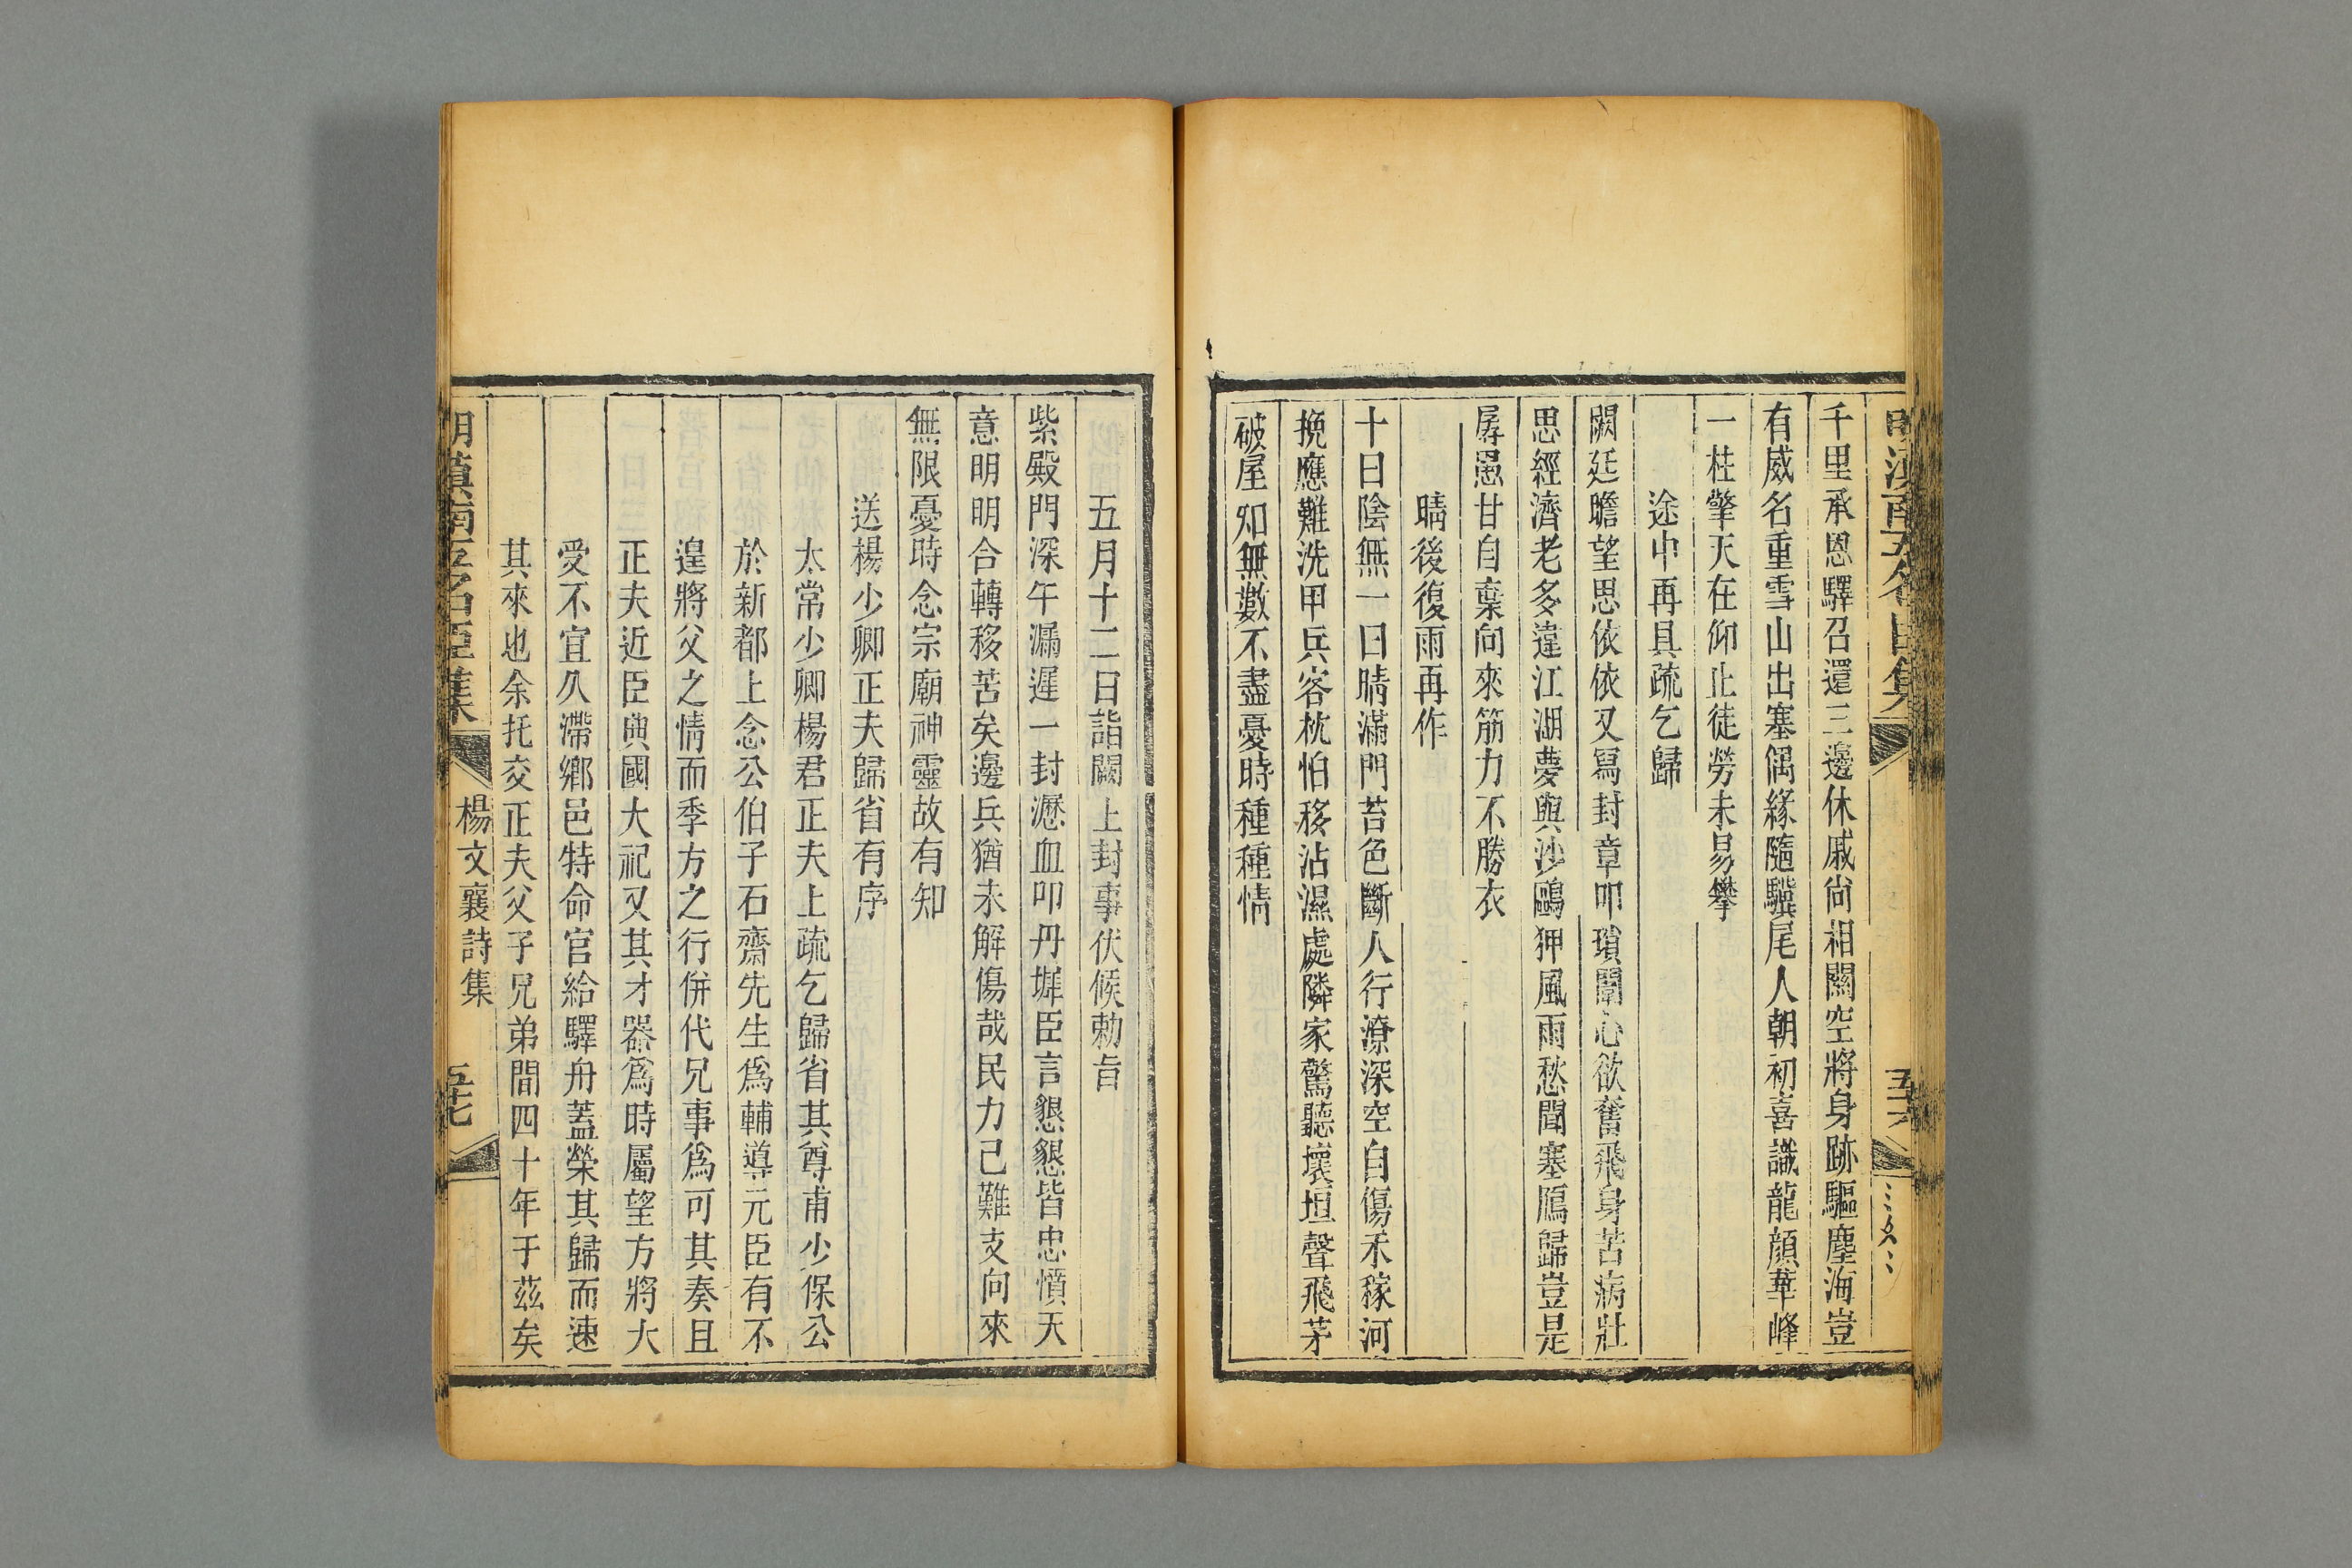 千里承恩驛召還三邊休戚尙相關空將身跡驅塵海豈
有威名重雪山出塞偶緣隨驥尾人朝初喜識龍顔華峰
一柱擎天在仰止徒勞未易攀
途中再具疏乞歸
闕廷瞻望思依依又寫封章叩瑣闈心欲奮飛身苦病壯
思經濟老多違江湖夢與沙鷗狎風雨愁聞塞鴈歸豈是
孱愚甘自棄向來筋力不勝衣
晴後復雨再作
十日陰無一日晴滿門苔色斷人行潦深空自傷禾稼河
挽應難洗甲兵客枕怕移沾濕處隣家驚聽壞垣聲飛茅
破屋知無數不盡憂時種種情
五月十二日詣闕上封事伏候勅旨
紫殿門深午漏遲一封瀝血叩丹墀臣言懇懇皆忠憤天
意明明合轉移苦矣邊兵猶未解傷哉民力己難支向來
無限憂時念宗廟神靈故有知
送楊少卿正夫歸省有序
太常少卿楊君正夫上疏乞歸省其尊甫少保公
於新都上念公伯子石齋先生爲輔導元臣有不
遑將父之情而季方之行併代兄事爲可其奏且
正夫近臣典國大祀又其才器爲時屬望方將大
愛不宜久滯鄉邑特命官給驛舟蓋榮其歸而速
其來也余托交正夫父子兄弟間四十年于茲矣
明滇南五名臣集
楊文襄詩集
五十七